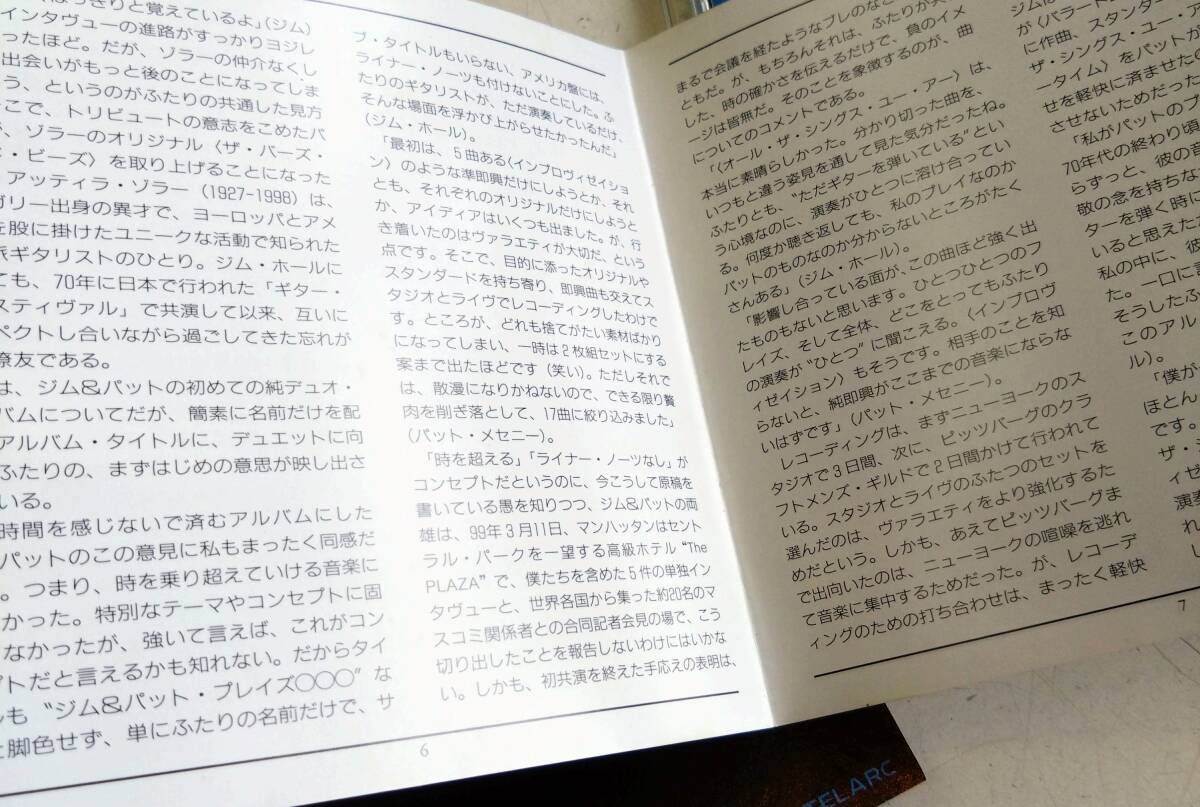 はっきりと覚えているよ」(ジム)
インタヴューの進路がすっかりヨジレ
ったほど。だが、ゾラーの仲介なくし
出会いがもっと後のことになってしま
う、というのがふたりの共通した見方
こで、トリビュートの意志をこめたバ
、ゾラーのオリジナル〈ザ・バーズ・
・ビーズ〉を取り上げることになった
アッティラ・ゾラー (1927-1998) は、
ガリー出身の異才で、ヨーロッパとアメ
を股に掛けたユニークな活動で知られた
派ギタリストのひとり。ジム・ホールに
ても、70年に日本で行われた「ギター・
スティヴァル」で共演して以来、互いに
ペクトし合いながら過ごしてきた忘れが
僚友である。
は、ジム&パットの初めての純デュオ・
バムについてだが、簡素に名前だけを配
アルバム・タイトルに、デュエットに向
ふたりの、まずはじめの意思が映し出さ
いる。
時間を感じないで済むアルバムにした
パットのこの意見に私もまったく同感だ
。つまり、時を乗り超えていける音楽に
かった。特別なテーマやコンセプトに固
なかったが、強いて言えば、これがコン
プトだと言えるかも知れない。だからタイ
ルも “ジム&パット・プレイズ○○○” な
と脚色せず、単にふたりの名前だけで、サ
ブ・タイトルもいらない、アメリカ盤には、
ライナー・ノーツも付けないことにした。ふ
たりのギタリストが、ただ演奏しているだけ、
そんな場面を浮かび上がらせたかったんだ」
(ジム・ホール)。
「最初は、5曲ある〈インプロヴィゼイショ
ン〉のような準即興だけにしようとか、それ
とも、それぞれのオリジナルだけにしようと
か、アイディアはいくつも出ました。が、行
き着いたのはヴァラエティが大切だ、という
点です。そこで、目的に添ったオリジナルや
スタンダードを持ち寄り、即興曲も交えてス
タジオとライヴでレコーディングしたわけで
す。ところが、どれも捨てがたい素材ばかり
になってしまい、一時は2枚組セットにする
案まで出たほどです (笑い)。ただしそれで
は、散漫になりかねないので、できる限り贅
肉を削ぎ落として、17曲に絞り込みました」
(パット・メセニー)。
「時を超える」「ライナー・ノーツなし」が
コンセプトだというのに、今こうして原稿を
書いている愚を知りつつ、ジム&パットの両
雄は、99年3月11日、マンハッタンはセント
ラル・パークを一望する高級ホテル “The
PLAZA” で、僕たちを含めた5件の単独イン
タヴューと、世界各国から集った約20名のマ
スコミ関係者との合同記者会見の場で、こう
切り出したことを報告しないわけにはいかな
い。しかも、初共演を終えた手応えの表明は、
6
まるで会議を経たようなブレのなさ
ともだ。が、もちろんそれは、ふたりが共
した、時の確かさを伝えるだけで、負のイメ
ージは皆無だ。そのことを象徴するのが、曲
についてのコメントである。
「〈オール・ザ・シングス・ユー・アー〉は、
本当に素晴らしかった。分かり切った曲を、
いつもと違う姿見を通して見た気分だったね。
ふたりとも、“ただギターを弾いている” とい
う心境なのに、演奏がひとつに溶け合ってい
る。何度か聴き返しても、私のプレイなのか
パットのものなのか分からないところがたく
さんある」(ジム・ホール)。
「影響し合っている面が、この曲ほど強く出
たものもないと思います。ひとつひとつのフ
レイズ、そして全体、どこをとってもふたり
の演奏が “ひとつ” に聞こえる。〈インプロヴ
ィゼイション〉もそうです。相手のことを知
らないと、純即興がここまでの音楽にならな
いはずです」(パット・メセニー)。
レコーディングは、まずニューヨークのス
タジオで3日間、次に、ピッツバーグのクラ
フトメンズ・ギルドで2日間かけて行われて
いる。スタジオとライヴのふたつのセットを
選んだのは、ヴァラエティをより強化するた
めだという。しかも、あえてピッツバーグま
で出向いたのは、ニューヨークの喧噪を逃れ
て音楽に集中するためだった。が、レコーデ
ィングのための打ち合わせは、まったく軽快
7
ジムは
が〈バラード
に作曲、スタンダー
ザ・シングス・ユー・ア
ータイム〉をパットが
せを軽快に済ませたの
させないためだった
「私がパットのプ
70年代の終わり頃
らずっと、彼の音
敬の念を持ちな
ターを弾く時に
いると思えた
私の中に、彼
た。一口に言
そうしたふ
このアル
ル)。
「僕が
ほとん
です。
ザ・シ
ィゼ
演奏
れ
て
TELARC